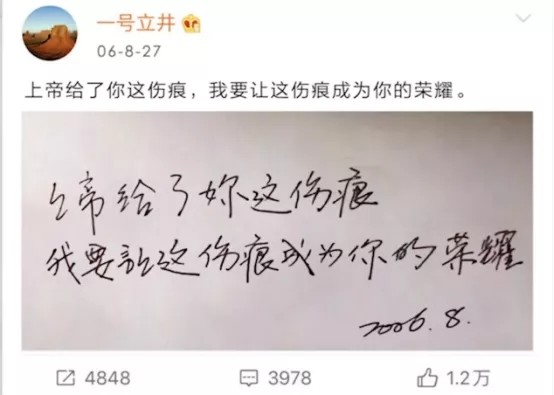 一号立井
06-8-27
上帝给了你这伤痕，我要让这伤痕成为你的荣耀。
上帝给了妳这伤痕
我要让这伤痕成为你的荣耀
2006.8.
4848
3978
1.2万